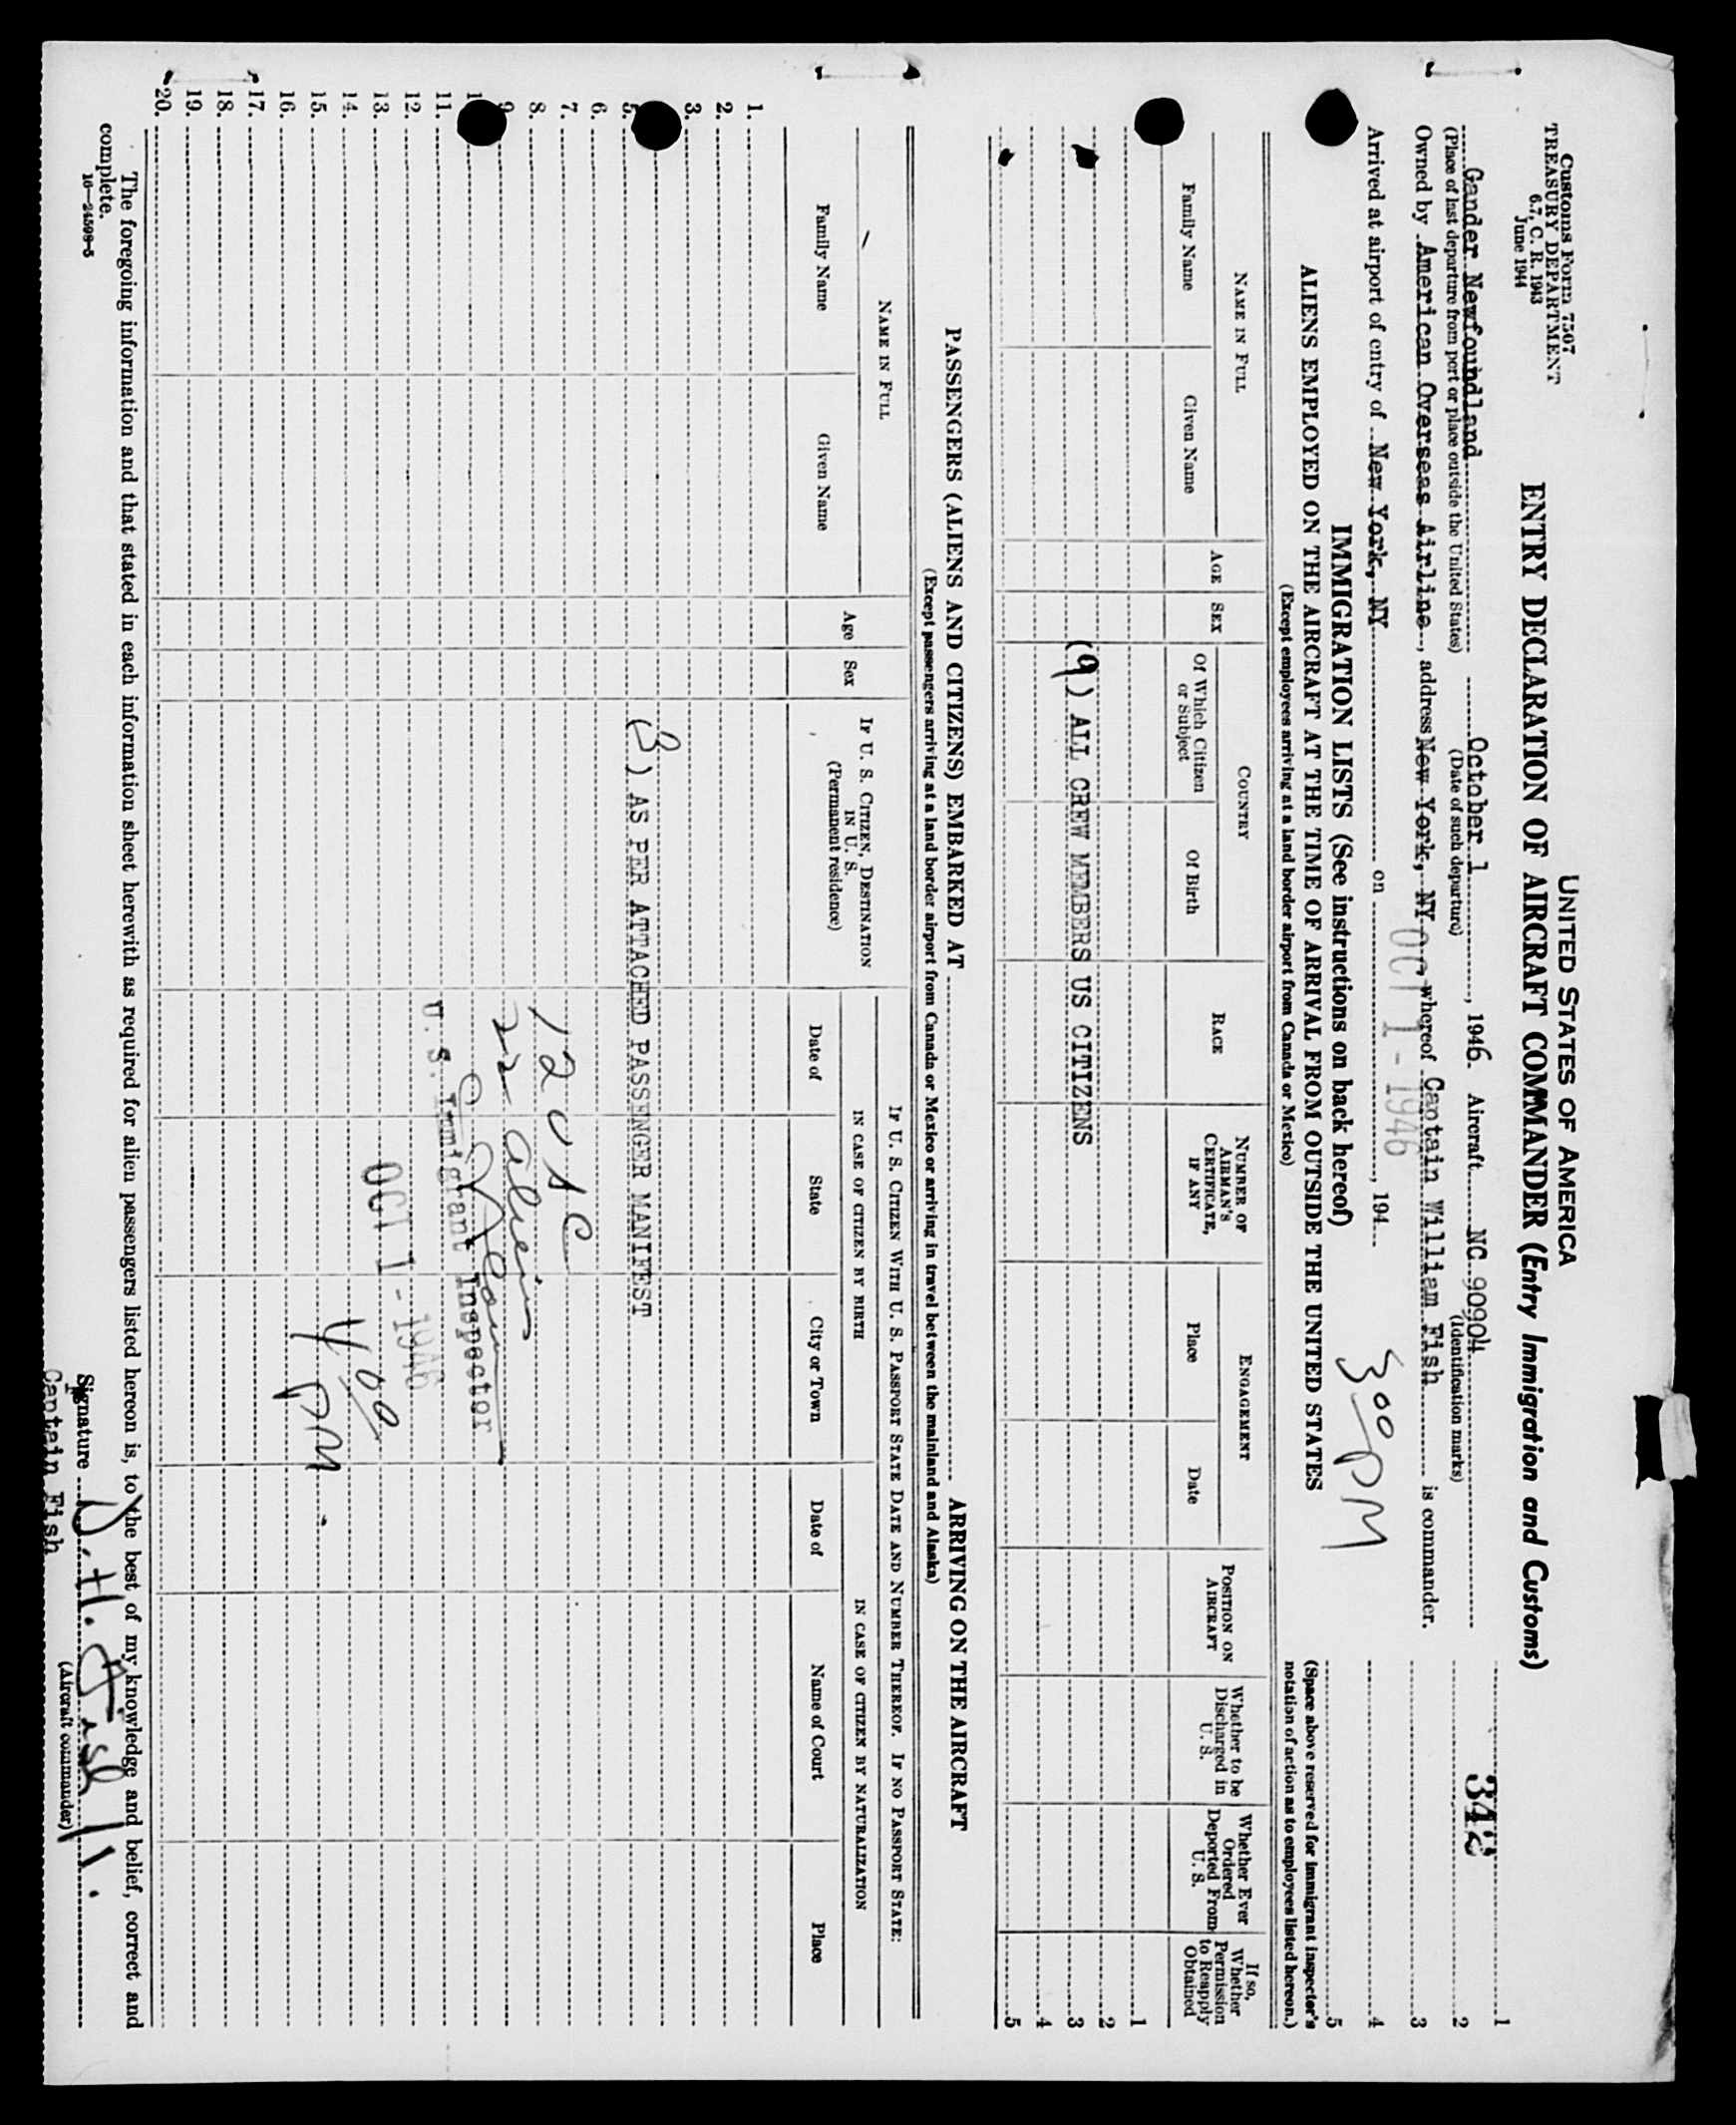 Customs Form 7507
TREASURY DEPARTMENT
6.7, C. R. 1943
June 1944
UNITED STATES OF AMERICA
ENTRY DECLARATION OF AIRCRAFT COMMANDER (Entry Immigration and Customs)
342
Gander Newfoundland October 1, 1946. Aircraft NC 90904
(Place of last departure from port or place outside the United States) (Date of such departure) (Identification marks)
Owned by American Overseas Airline, address New York, NY, whereof Captain William Fish is commander.
Arrived at airport of entry of New York, NY on OCT 1 - 1946, 194
300 PM
1
2
3
4
5
(Space above reserved for immigrant inspector's notation of action as to employees listed hereon.)
IMMIGRATION LISTS (See instructions on back hereof)
ALIENS EMPLOYED ON THE AIRCRAFT AT THE TIME OF ARRIVAL FROM OUTSIDE THE UNITED STATES
(Except employees arriving at a land border airport from Canada or Mexico)
NAME IN FULL
Family Name
Given Name
AGE
SEX
COUNTRY
Of Which Citizen or Subject
Of Birth
RACE
NUMBER OF AIRMAN'S CERTIFICATE, IF ANY
ENGAGEMENT
Place
Date
POSITION ON AIRCRAFT
Whether to be Discharged in U. S.
Whether Ever Ordered Deported From U. S.
If so, Whether Permission to Reapply Obtained
1
2
(9) ALL CREW MEMBERS US CITIZENS 3
4
5
PASSENGERS (ALIENS AND CITIZENS) EMBARKED AT ARRIVING ON THE AIRCRAFT
(Except passengers arriving at a land border airport from Canada or Mexico or arriving in travel between the mainland and Alaska)
NAME IN FULL
Family Name
Given Name
Age
Sex
IF U. S. CITIZEN, DESTINATION IN U. S.
(Permanent residence)
IF U. S. CITIZEN WITH U. S. PASSPORT STATE DATE AND NUMBER THEREOF. IF NO PASSPORT STATE:
IN CASE OF CITIZEN BY BIRTH
Date of
State
City or Town
IN CASE OF CITIZEN BY NATURALIZATION
Date of
Name of Court
Place
1.
2.
3.
5. (3) AS PER ATTACHED PASSENGER MANIFEST
6.
7.
8. 12 USC
9. 22 aliens
11. U. S. Immigrant Inspector
12.
13. OCT 1 - 1946
14. 400
15. PM
16.
17.
18.
19.
20.
The foregoing information and that stated in each information sheet herewith as required for alien passengers listed hereon is, to the best of my knowledge and belief, correct and
complete.
16—24598-5
Signature W. H. Fish
(Aircraft commander)
Captain Fish